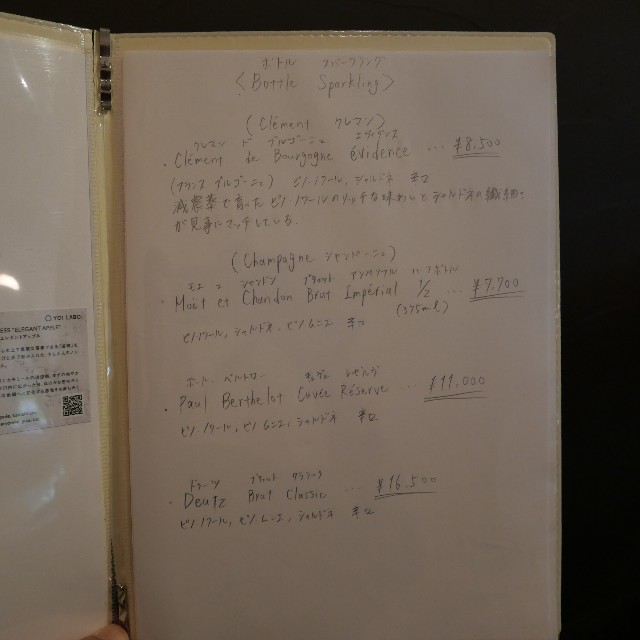 ボトル スパークリング
<Bottle Sparkling>
(Clément クレマン)
クレマン ド ブルゴーニュ エヴィダンス
・Clément de Bourgogne évidence … ¥8,500
(フランス ブルゴーニュ) ピノ・ノワール、シャルドネ 辛口
減農薬で育ったピノ・ノワールのリッチな味わいとシャルドネの繊細さ
が見事にマッチしている。
(Champagne シャンパーニュ)
モエ エ シャンドン ブリュット アンペリアル ハーフボトル
・Moët et Chandon Brut Impérial 1/2 … ¥7,700
(375ml)
ピノ・ノワール、シャルドネ、ピノ・ムニエ 辛口
ポール・ベルトロー キュヴェ レゼルヴ
・Paul Berthelot Cuvée Réserve … ¥11,000
ピノ・ノワール、ピノ・ムニエ、シャルドネ 辛口
ドゥーツ ブリュット クラシック
・Deutz Brut Classic … ¥16,500
ピノ・ノワール、ピノ・ムニエ、シャルドネ 辛口
YOI LABO
"ELEGANT APPLE"